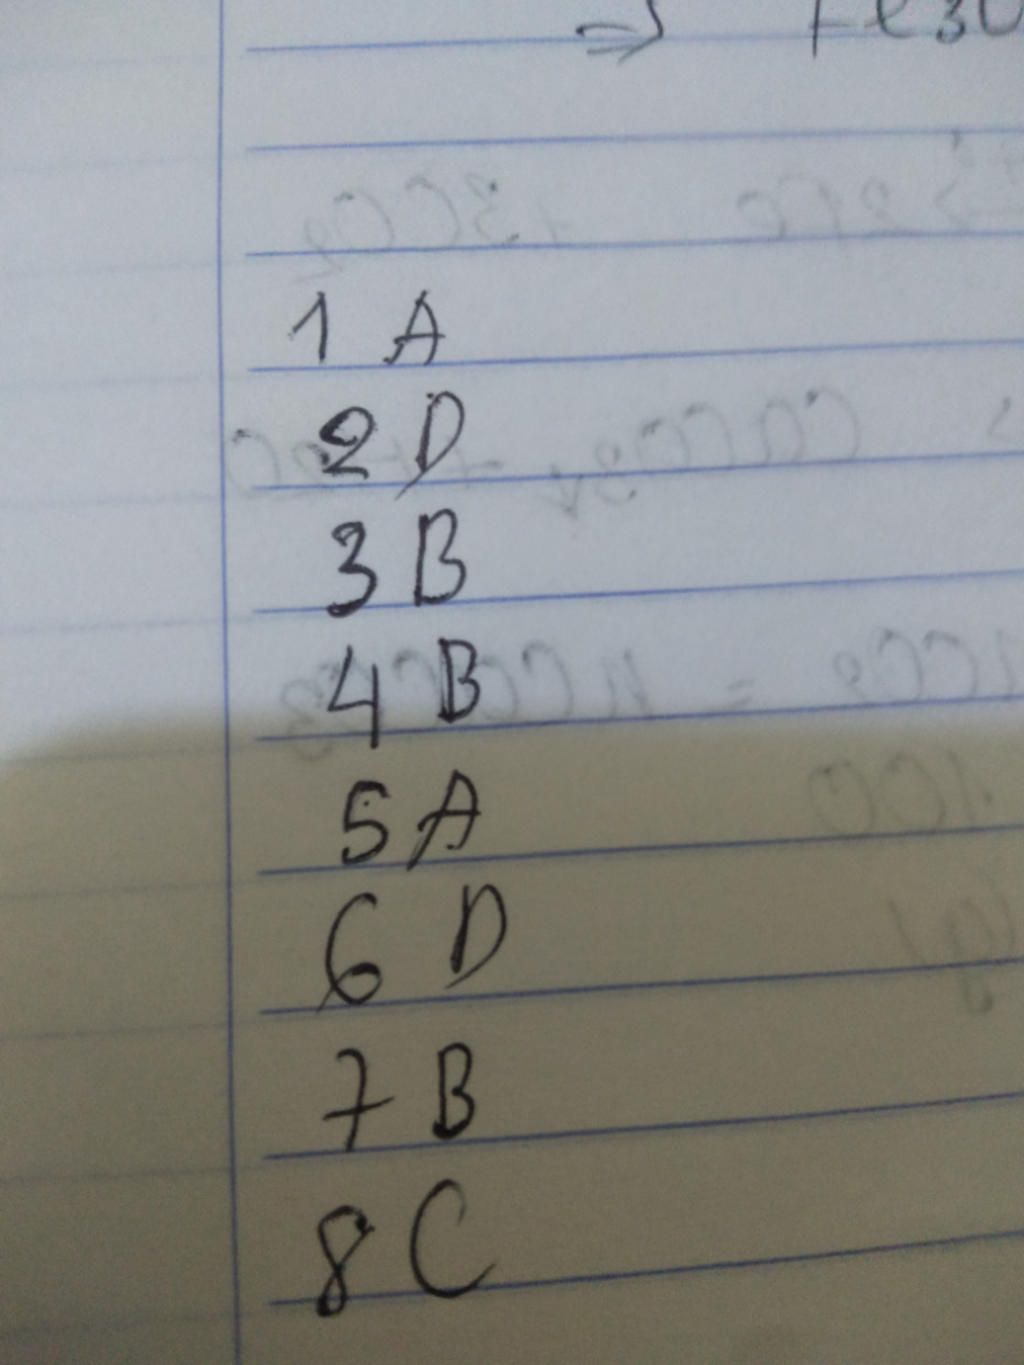 ⇒ Fe3O
1 A
2 D
3 B
4 B
5 A
6 D
7 B
8 C